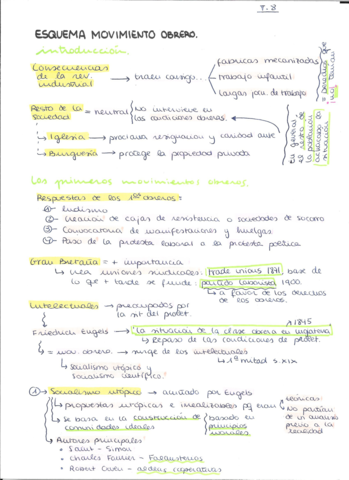 T. 8
ESQUEMA MOVIMIENTO OBRERO.
introducción
Consecuencias de la rev. industrial → traen consigo...
→ fabricas mecanizadas
→ trabajo infantil
→ largas jor. de trabajo
Resto de la sociedad = neutral
No interviene en las condiciones obreras.
→ Iglesia → proclama resignación y caridad
→ Burguesía → protege la propiedad privada
En general, el resto de la población
Los primeros movimientos obreros.
Respuestas de los 1eros obreros:
1- Ludismo
2- Creación de cajas de resistencia o sociedades de socorro
3- Convocatoria de manifestaciones y huelgas
4- Paso de la protesta laboral a la protesta política
Gran Bretaña = + importancia
↳ crea uniones sindicales: trade unions 1871 base de
lo que + tarde se funda: partido laborista 1900.
↳ a favor de los derechos de los obreros.
Intelectuales → preocupados por la sit del prolet.
Friedrich Engels → "la situación de la clase obrera en inglaterra"
→ 1845
↳ Repaso de las condiciones de prolet.
= mov. obrero. → surge de los intelectuales
↳ 1ª mitad s.xix
↳ socialismo utópico y socialismo científico.
1 → Socialismo utópico → acuñado por Engels
↳ propuestas utópicas e irrealizables pq eran
teóricas: No partían de un análisis previo a la realidad
↳ se basa en la construcción de comunidades ideales
basado en principios morales
↳ Autores principales:
• Saint - Simon
• Charles Fourier - Falansterios
• Robert Owen - aldeas cooperativas